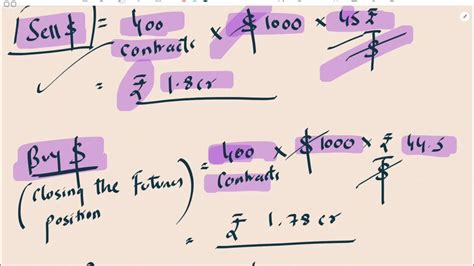 Sell $ = 400 contracts × $ 1000 × 45 ₹/$
= ₹ 1.8cr
Buy $ = 400 contracts × $ 1000 × ₹ 44.5/$
(Closing the Futures position)
= ₹ 1.78 cr